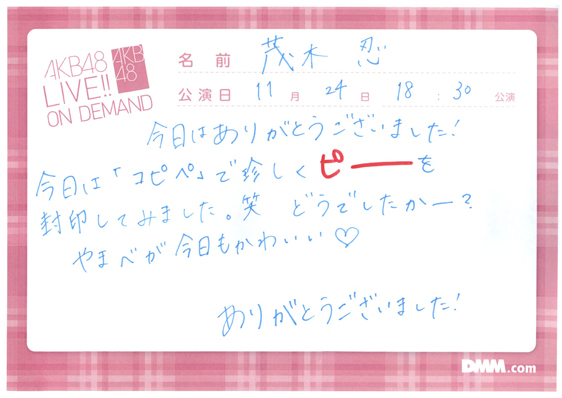 AKB48
LIVE!!
ON DEMAND
AKB
48
名前 茂木 忍
公演日 11月24日 18:30 公演
今日はありがとうございました!
今日は「コピペ」で珍しくピーーを
封印してみました。笑 どうでしたかー?
やまべが今日もかわいい♡
ありがとうございました!
DMM.com